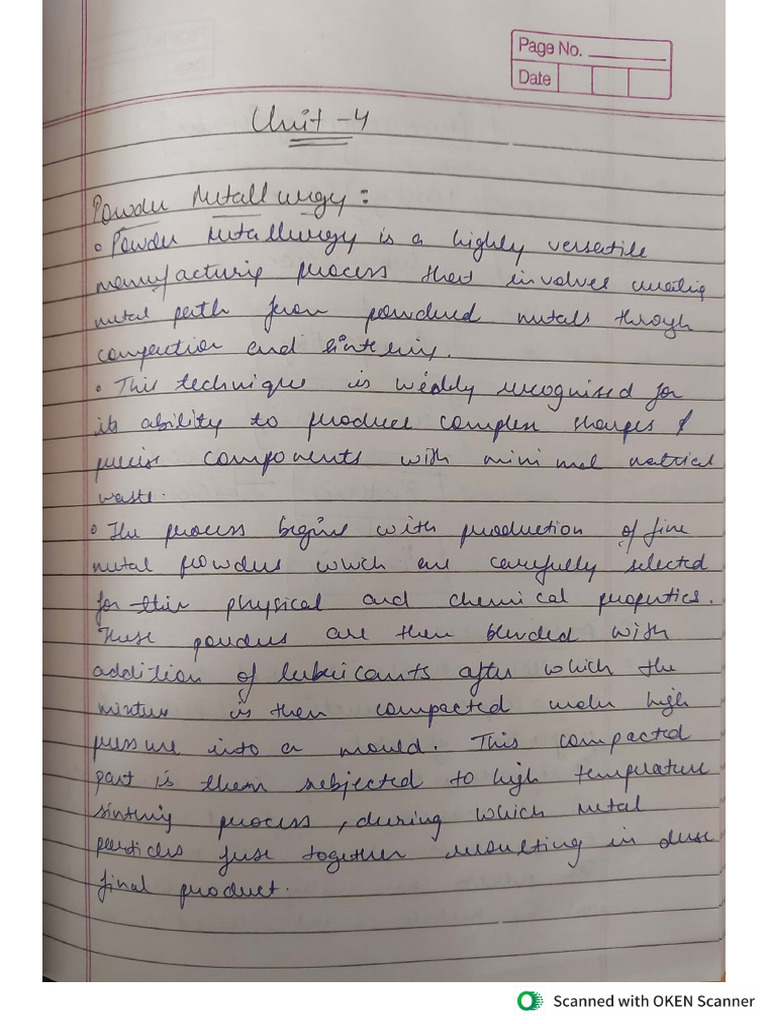 Page No.
Date
Unit - 4
Powder Metallurgy :
• Powder Metallurgy is a highly versatile
manufacturing process that involves creating
metal parts from powdered metals through
compaction and sintering.
• This technique is widely recognised for
its ability to produce complex shapes &
precise components with minimal material
waste.
• The process begins with production of fine
metal powders which are carefully selected
for their physical and chemical properties.
These powders are then blended with
addition of lubricants after which the
mixture is then compacted under high
pressure into a mould. This compacted
part is then subjected to high temperature
sintering process, during which metal
particles fuse together resulting in dense
final product.
Scanned with OKEN Scanner